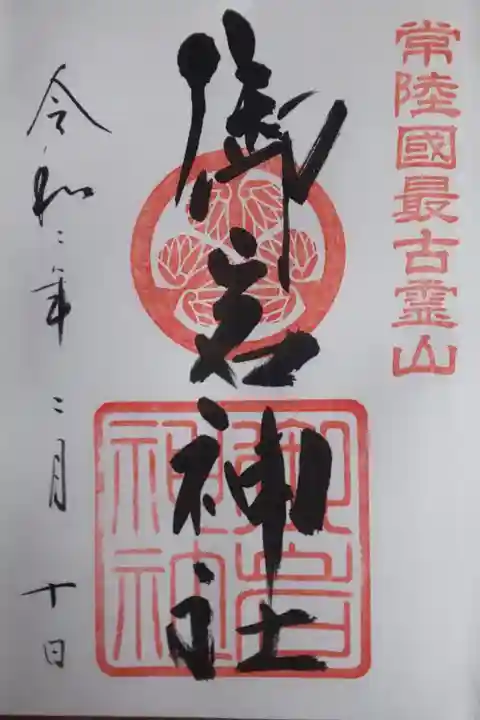 常陸國最古霊山
御岩神社
御岩
神社
令和二年二月十日